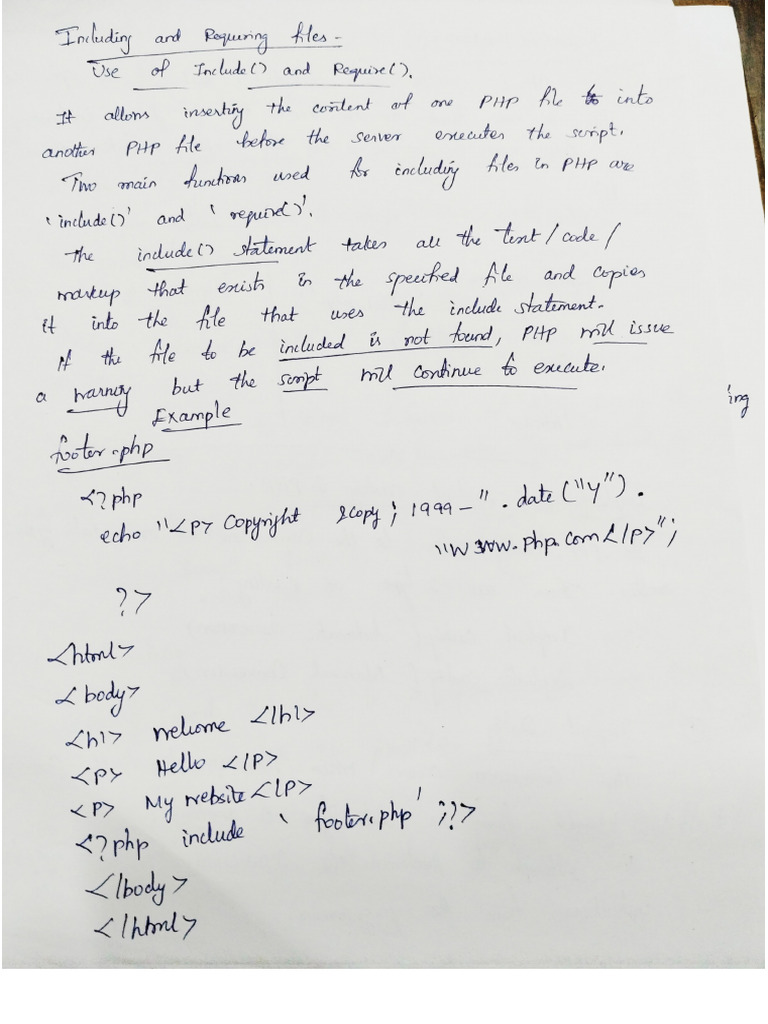 Including and Requiring files -
Use of Include() and Require().
It allows inserting the content of one PHP file into
another PHP file before the server executes the script.
Two main functions used for including files in PHP are
'include()' and 'require()'.
The include() statement takes all the text/code/
markup that exists in the specified file and copies
it into the file that uses the include statement.
If the file to be included is not found, PHP will issue
a warning but the script will continue to execute.
ing
Example
footer.php
<?php
echo "<p> Copyright &copy; 1999-" . date("Y") .
"www.php.com</p>";
?>
<html>
<body>
<h1> Welcome </h1>
<p> Hello </p>
<p> My website </p>
<?php include 'footer.php';?>
</body>
</html>